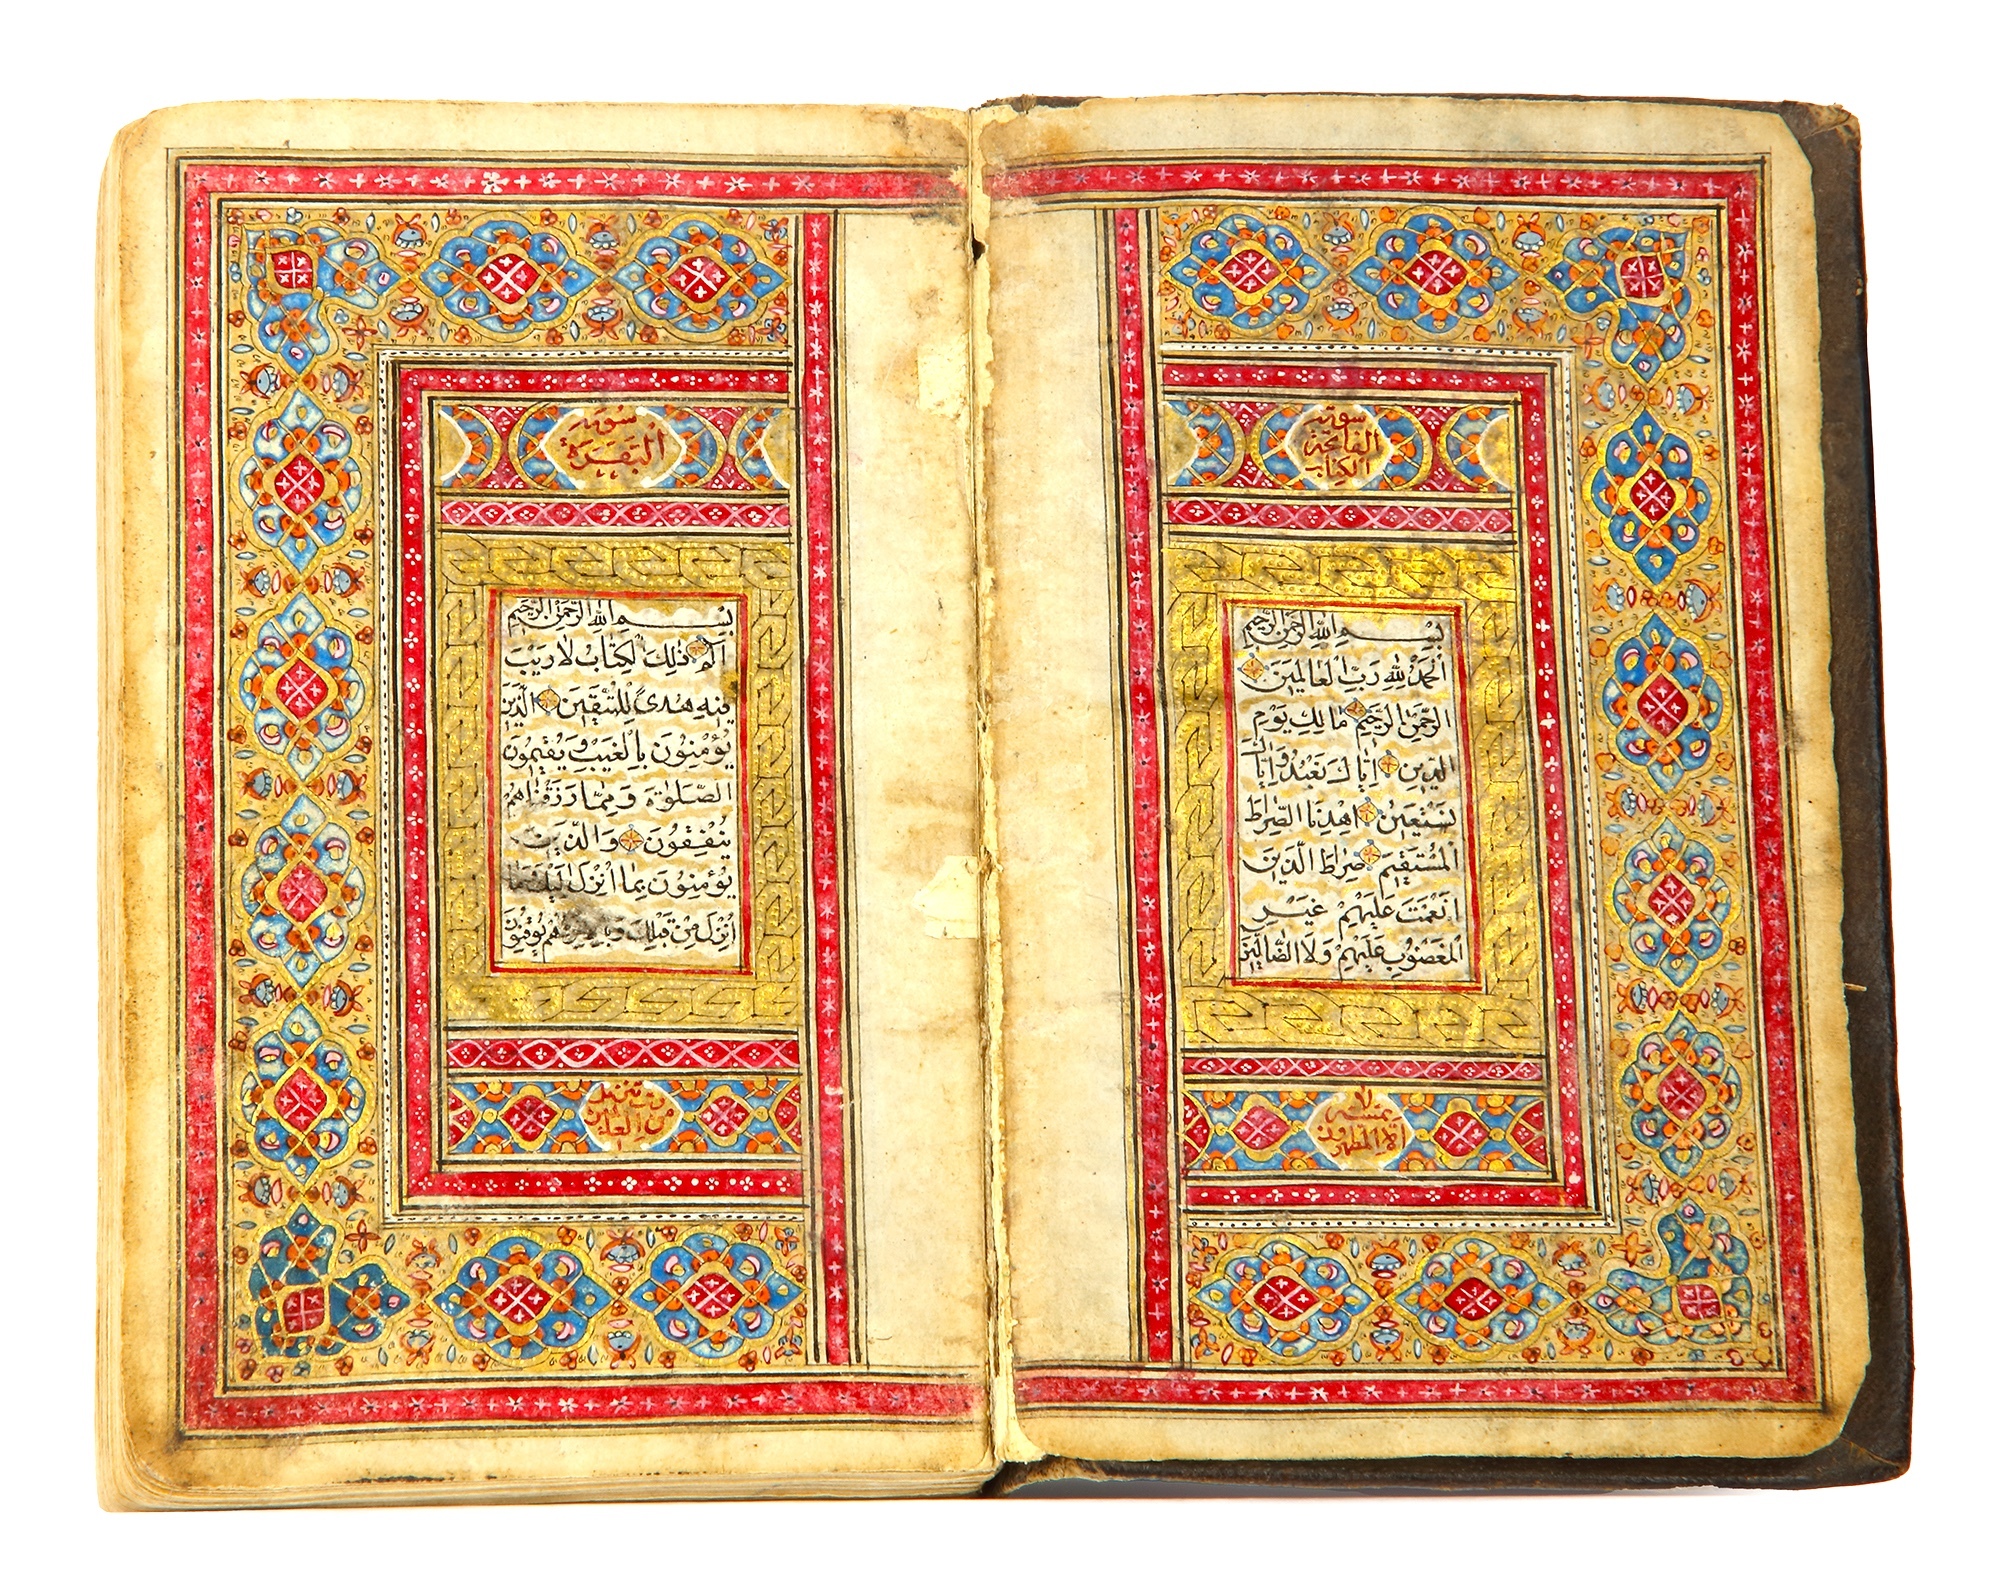 سورة
الفاتحة
الكتاب
بِسْمِ اللهِ الرَّحْمٰنِ الرَّحِيمِ
اَلْحَمْدُ لِلّٰهِ رَبِّ الْعَالَمِينَ
الرَّحْمٰنِ الرَّحِيمِ مَالِكِ يَوْمِ
الدِّينِ اِيَّاكَ نَعْبُدُ وَاِيَّاكَ
نَسْتَعِينُ اهْدِنَا الصِّرَاطَ
الْمُسْتَقِيمَ صِرَاطَ الَّذِينَ
اَنْعَمْتَ عَلَيْهِمْ غَيْرِ
الْمَغْضُوبِ عَلَيْهِمْ وَلَا الضَّالِّينَ
لا
يمسه
الا المطهرون
سورة
الْبَقَرَة
بِسْمِ اللهِ الرَّحْمٰنِ الرَّحِيمِ
الٓمٓ ذٰلِكَ الْكِتَابُ لَا رَيْبَ
فِيهِ هُدًى لِلْمُتَّقِينَ الَّذِينَ
يُؤْمِنُونَ بِالْغَيْبِ وَيُقِيمُونَ
الصَّلٰوةَ وَمِمَّا رَزَقْنَاهُمْ
يُنْفِقُونَ وَالَّذِينَ
يُؤْمِنُونَ بِمَا اُنْزِلَ اِلَيْكَ وَمَا
اُنْزِلَ مِنْ قَبْلِكَ هُمْ يُوقِنُونَ
تنزيل
من
العالمين